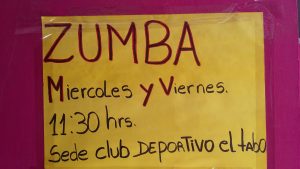 ZUMBA
Miercoles y Viernes.
11:30 hrs.
Sede club DEPORTIVO el tabo